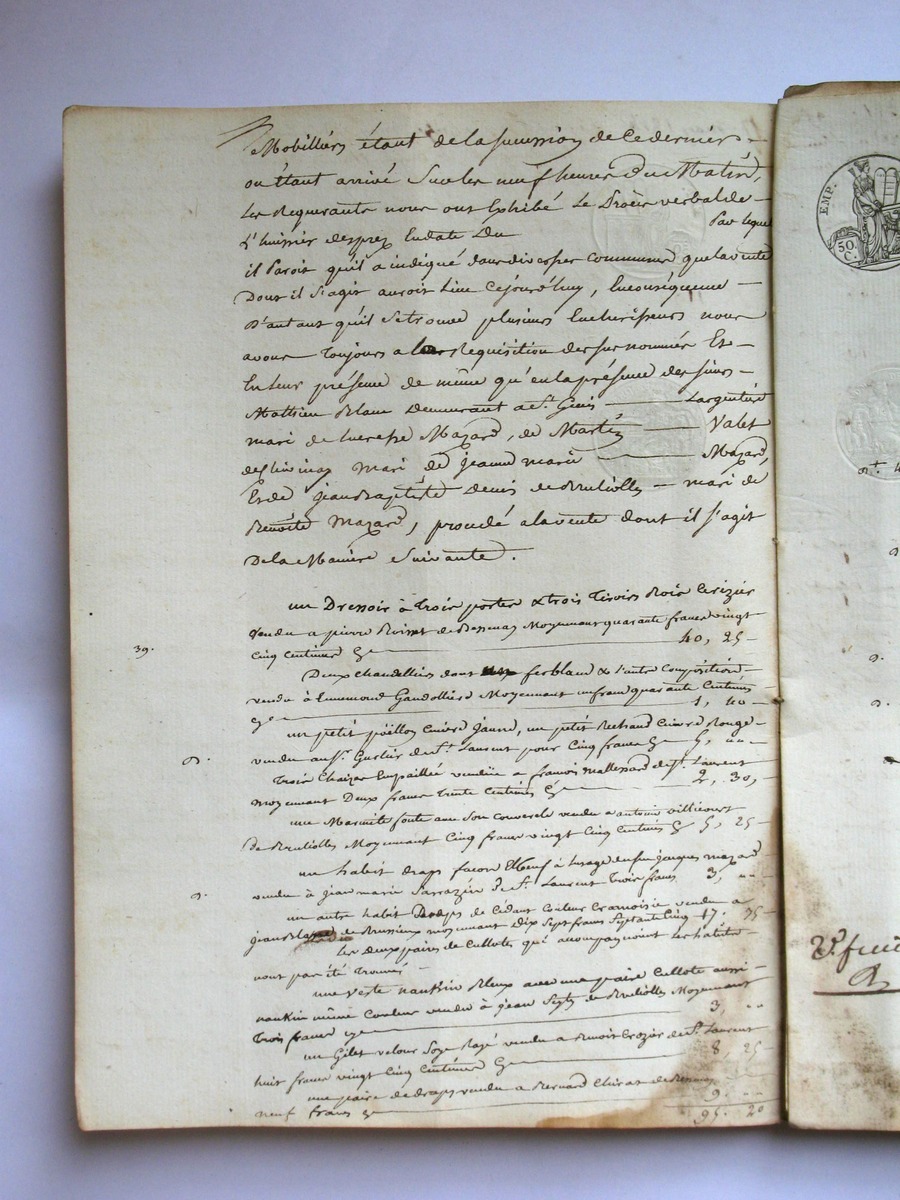 Mobilliers étant de la sucession de ce dernier
où étant arrivé sur les neuf heures du Matin,
Les Requerants nous ont Exhibé Le Procès verbal de
L'huissier desprez En date Du Par lequel
il Paroit qu'il a indiqué dans diverses communes que la vente
Dont il S'agit auroit Lieu Cejourd'huy, En conséquence
D'autant qu'il se trouve plusieurs Encherisseurs nous
avons Toujours a la Requisition des sus nommés Et
En leur présence de même qu'en la présence des sieurs
Mathieu Blanc Demeurant a St. Genis Largentière
mari de Mazard, de Martin Valet
mari de jeanne marie Mazard,
Et de jean Baptiste Denis de Brulliolles mari de
Benoîte Mazard, procédé a la vente dont il s'agit
De la Manière Suivante.
un Dressoir à Trois portes & trois Tiroirs Bois Cerizier
vendu a pierre de Bessenay Moyennant quarante francs vingt
39.
Cinq Centimes 40, 25
Deux chandelliers dont ferblanc & l'autre Composition
vendu à Ennemond Gandollière Moyennant un franc quarante Centimes
1, 40
un petit poëllon Cuivre Jaune, un petit Rechaud Cuivre Rouge
vendu au Sr. de St. Laurent pour Cinq francs 5, "
Trois Chaizes Empaillée vendüe a francois de St. Laurent
moyennant Deux francs Trente Centimes 2, 30,
une Marmite fonte avec Son Couvercle vendu a antoine villicourt
de Brulliolles Moyennant Cinq francs vingt Cinq Centimes 5, 25
un habit draps facon Elbeuf à l'usage du feu jacques mazard
vendu à jean marie Sarrazin de St. Laurent Trois francs 3, "
un autre habit Draps de Cédant Couleur Cramoisie vendu a
jean de Brussieux moyennant Dix Sept francs Septante Cinq 17. 75
Les Deux paires de Culottes qui accompagnoient Les habits
nont pas été Trouvés
une veste nankin Bleux avec une paire Culotte aussi
nankin même Couleur vendu à jean de Brulliolles Moyennant
Trois francs 3, "
un Gilet velour Soye Rayé vendu a Benoit Crozier de St. Laurent
huit francs vingt Cinq Centimes 8, 25
une paire de draps vendu a Bernard Chirat de Bessenay
neuf francs 9. "
95. 20
EMP.
50.
C.